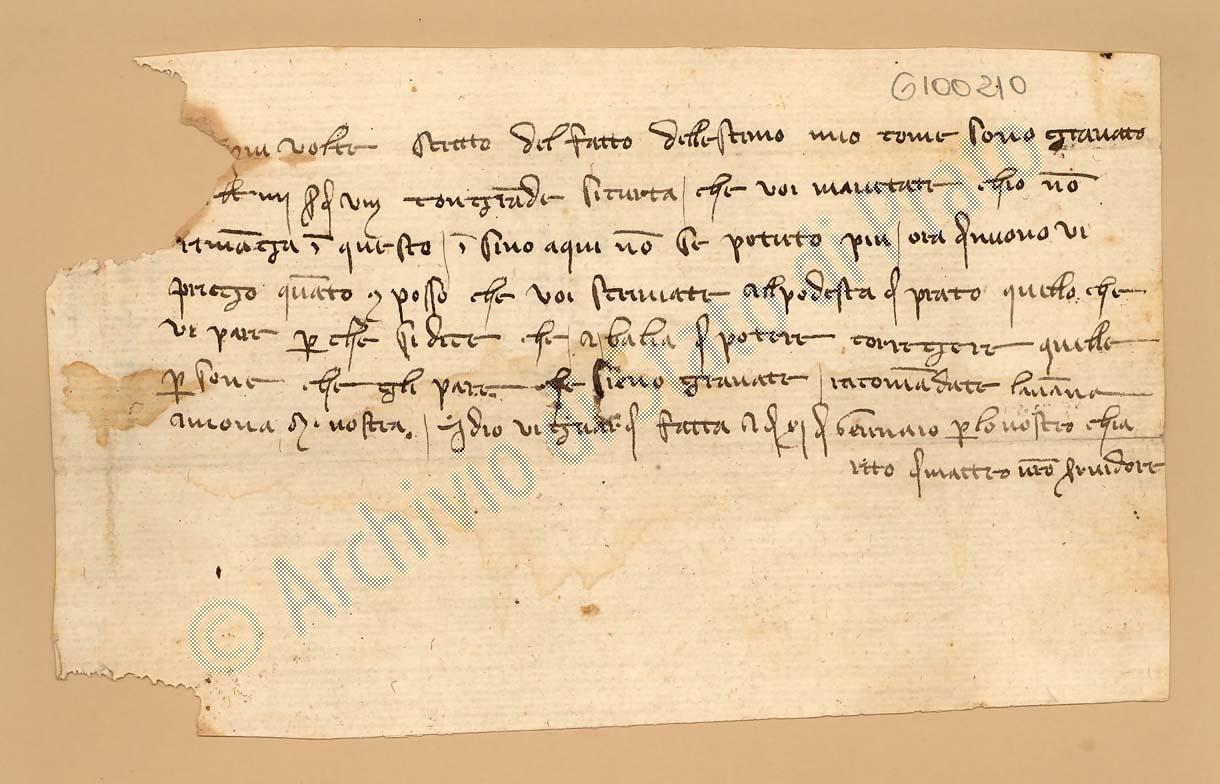 G100210
volte scritto del fatto dellestimo mio come sono gravato
viij con grāde sicurta / che voi maiutate chio nō
rimāgha ī questo / ī sino aqui nō se potuto piu / ora dinuovo vi
priegho quāto posso che voi scriviate alpodesta di prato quello che
vi pare perche si dice che a balia di potere corregiere quelle
persone che gli pare che sieno gravate / racomādate
e nostra. / Idio vi guardi fatta a di di Gennaio plo vostro chia
rito di matteo vrō servidore
© Archivio di Stato di Prato